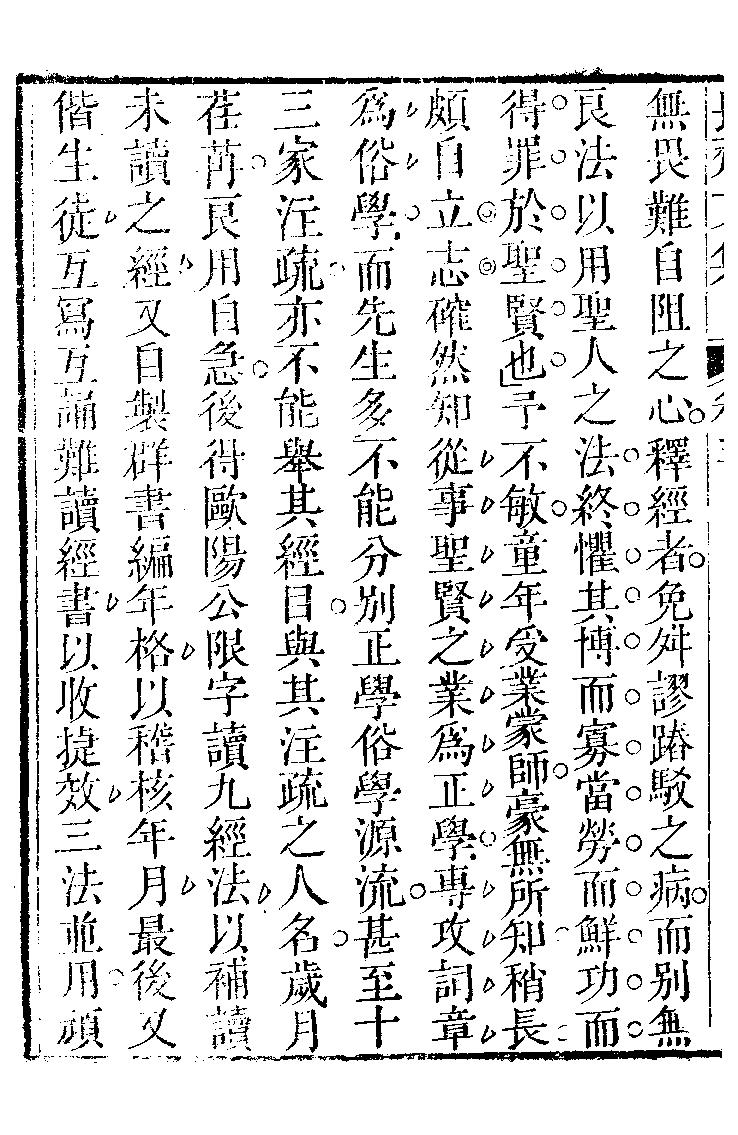 無畏難自阻之心釋經者免舛謬踳駁之病而别無
良法以用聖人之法終懼其博而寡當勞而鮮功而
得罪於聖賢也予不敏童年受業蒙師豪無所知稍長
頗自立志確然知從事聖賢之業爲正學專攻詞章
爲俗學而先生多不能分别正學俗學源流甚至十
三家注疏亦不能舉其經目與其注疏之人名歲月
荏苒良用自急後得歐陽公限字讀九經法以補讀
未讀之經又自製群書編年格以稽核年月最後又
偕生徒互寫互誦難讀經書以收捷效三法並用頑